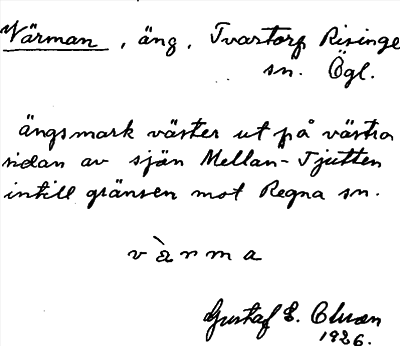 Värman, äng, Tvartorp Risinge
sn. Ögl.
ängsmark väster ut på västra
sidan av sjön Mellan-Tjutten
intill gränsen mot Regna sn.
v à r m a
Gustaf E.
1926.